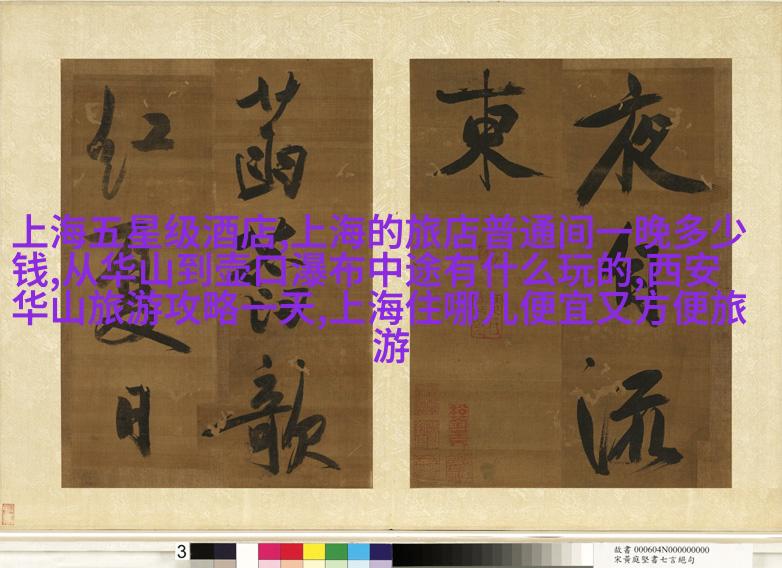 夜流
東
菡歌
紅日
上海五星级酒店,上海的旅店普通间一晚多少
钱,从华山到壶口瀑布中途有什么玩的,西安
华山旅游攻略一天,上海住哪儿便宜又方便旅
游
3
故書 000604N000000000
宋黃庭堅書七言絕句